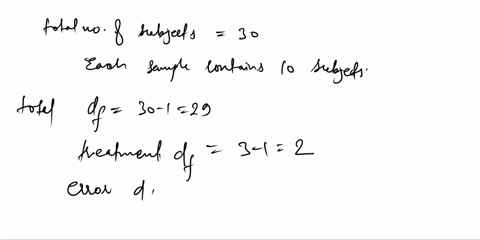 total no. of subjects = 30
Each sample contains 10 subjects.
total df = 30-1 = 29
treatment df = 3-1 = 2
error d